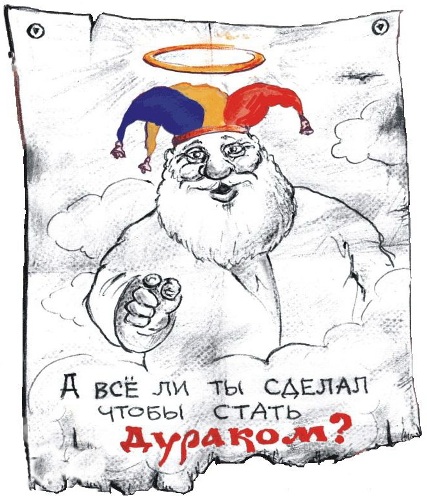 А ВСЁ ЛИ ТЫ СДЕЛАЛ
ЧТОБЫ СТАТЬ
Дураком?